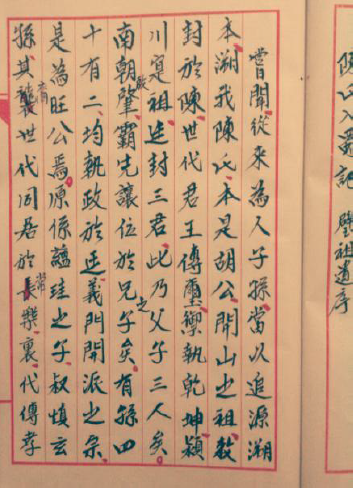 陳氏入粵記 肇祖遺序
嘗聞從來為人子孫當以追源溯
本溯我陳氏本是胡公開山之祖敕
封於陳世代君王傳璽禦執乾坤潁
川寔祖廷封三君此乃父子三人矣
南朝肇霸先讓位於兄之子矣有孫四
十有二均執政於廷義門開派之宗
是為旺公焉原係蘊珪之子叔慎玄
孫其裔襲世代同居於長常樂裏代傳孝